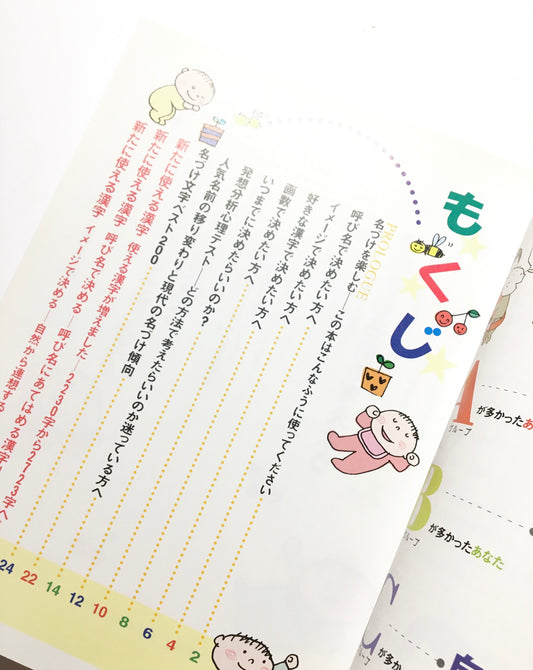 もくじ
PROLOGUE
名つけを楽しむ―この本はこんなふうに使ってください
呼び名で決めたい方へ
イメージで決めたい方へ
好きな漢字で決めたい方へ
画数で決めたい方へ
いつまでに決めたらいいのか?
発想分析心理テスト―どの方法で考えたらいいのか迷っている方へ
人気名前の移り変わりと現代の名つけ傾向
名つけ文字ベスト200
新たに使える漢字 使える漢字が増えました―2230字から2723字へ
新たに使える漢字 呼び名で決める―呼び名にあてはめる漢字
新たに使える漢字 イメージで決める―自然から連想する
2
4
6
8
10
12
14
22
24
A
が多かったあ
グループ
B
が多かったあなた
グループ
が多か